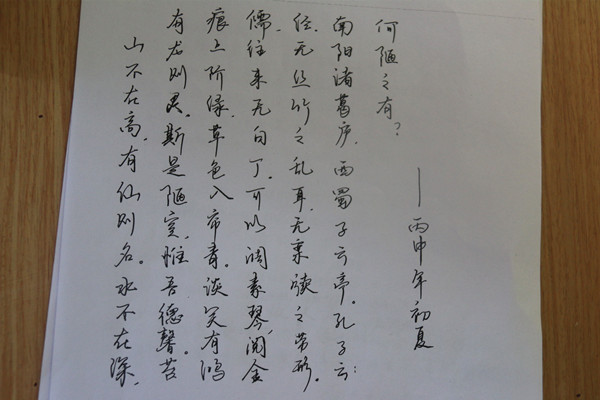 山不在高,有仙则名。水不在深,
有龙则灵。斯是陋室,惟吾德馨。苔
痕上阶绿,草色入帘青。谈笑有鸿
儒,往来无白丁。可以调素琴,阅金
经。无丝竹之乱耳,无案牍之劳形。
南阳诸葛庐,西蜀子云亭。孔子云:
何陋之有?
——丙申年初夏